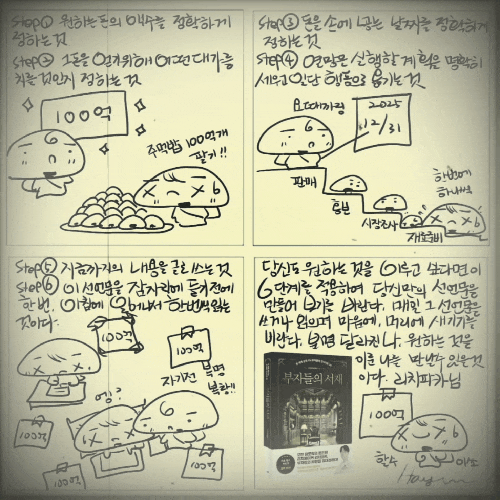 Step① 원하는 돈의 액수를 정확하게
정하는 것
Step② 그 돈을 얻기위해 어떤 대가를
치를 것인지 정하는 것
100억
주먹밥 100억개
팔기!!
Step③ 돈을 손에 넣는 날짜를 정확하게
정하는 것
Step④ 열망을 실행할 계획을 명확히
세우고 일단 행동으로 옮기는 것
요때까징
2025
12/31
판매
홍보
시장조사
재료준비
한번에
하나씩
Step⑤ 지금까지의 내용을 글로 쓰는 것
Step⑥ 이 선언문을 잠자리에 들기전에
한번, 아침에 일어나서 한번씩 읽는
것이다.
100억
100억
자기전
복명
복창!!
100억
100억
당신도 원하는 것을 이루고 싶다면 이
6단계를 적용하여 당신만의 선언문을
만들어 보기를 바란다. 매일 그 선언문을
쓰거나 읽으며 마음에, 머리에 새기기를
바란다. 보면 달라진 나, 원하는 것을
이룬 나를 만날수 있을것
이다. 리치파카님
부자들의 서재
100억
할수
이쏘